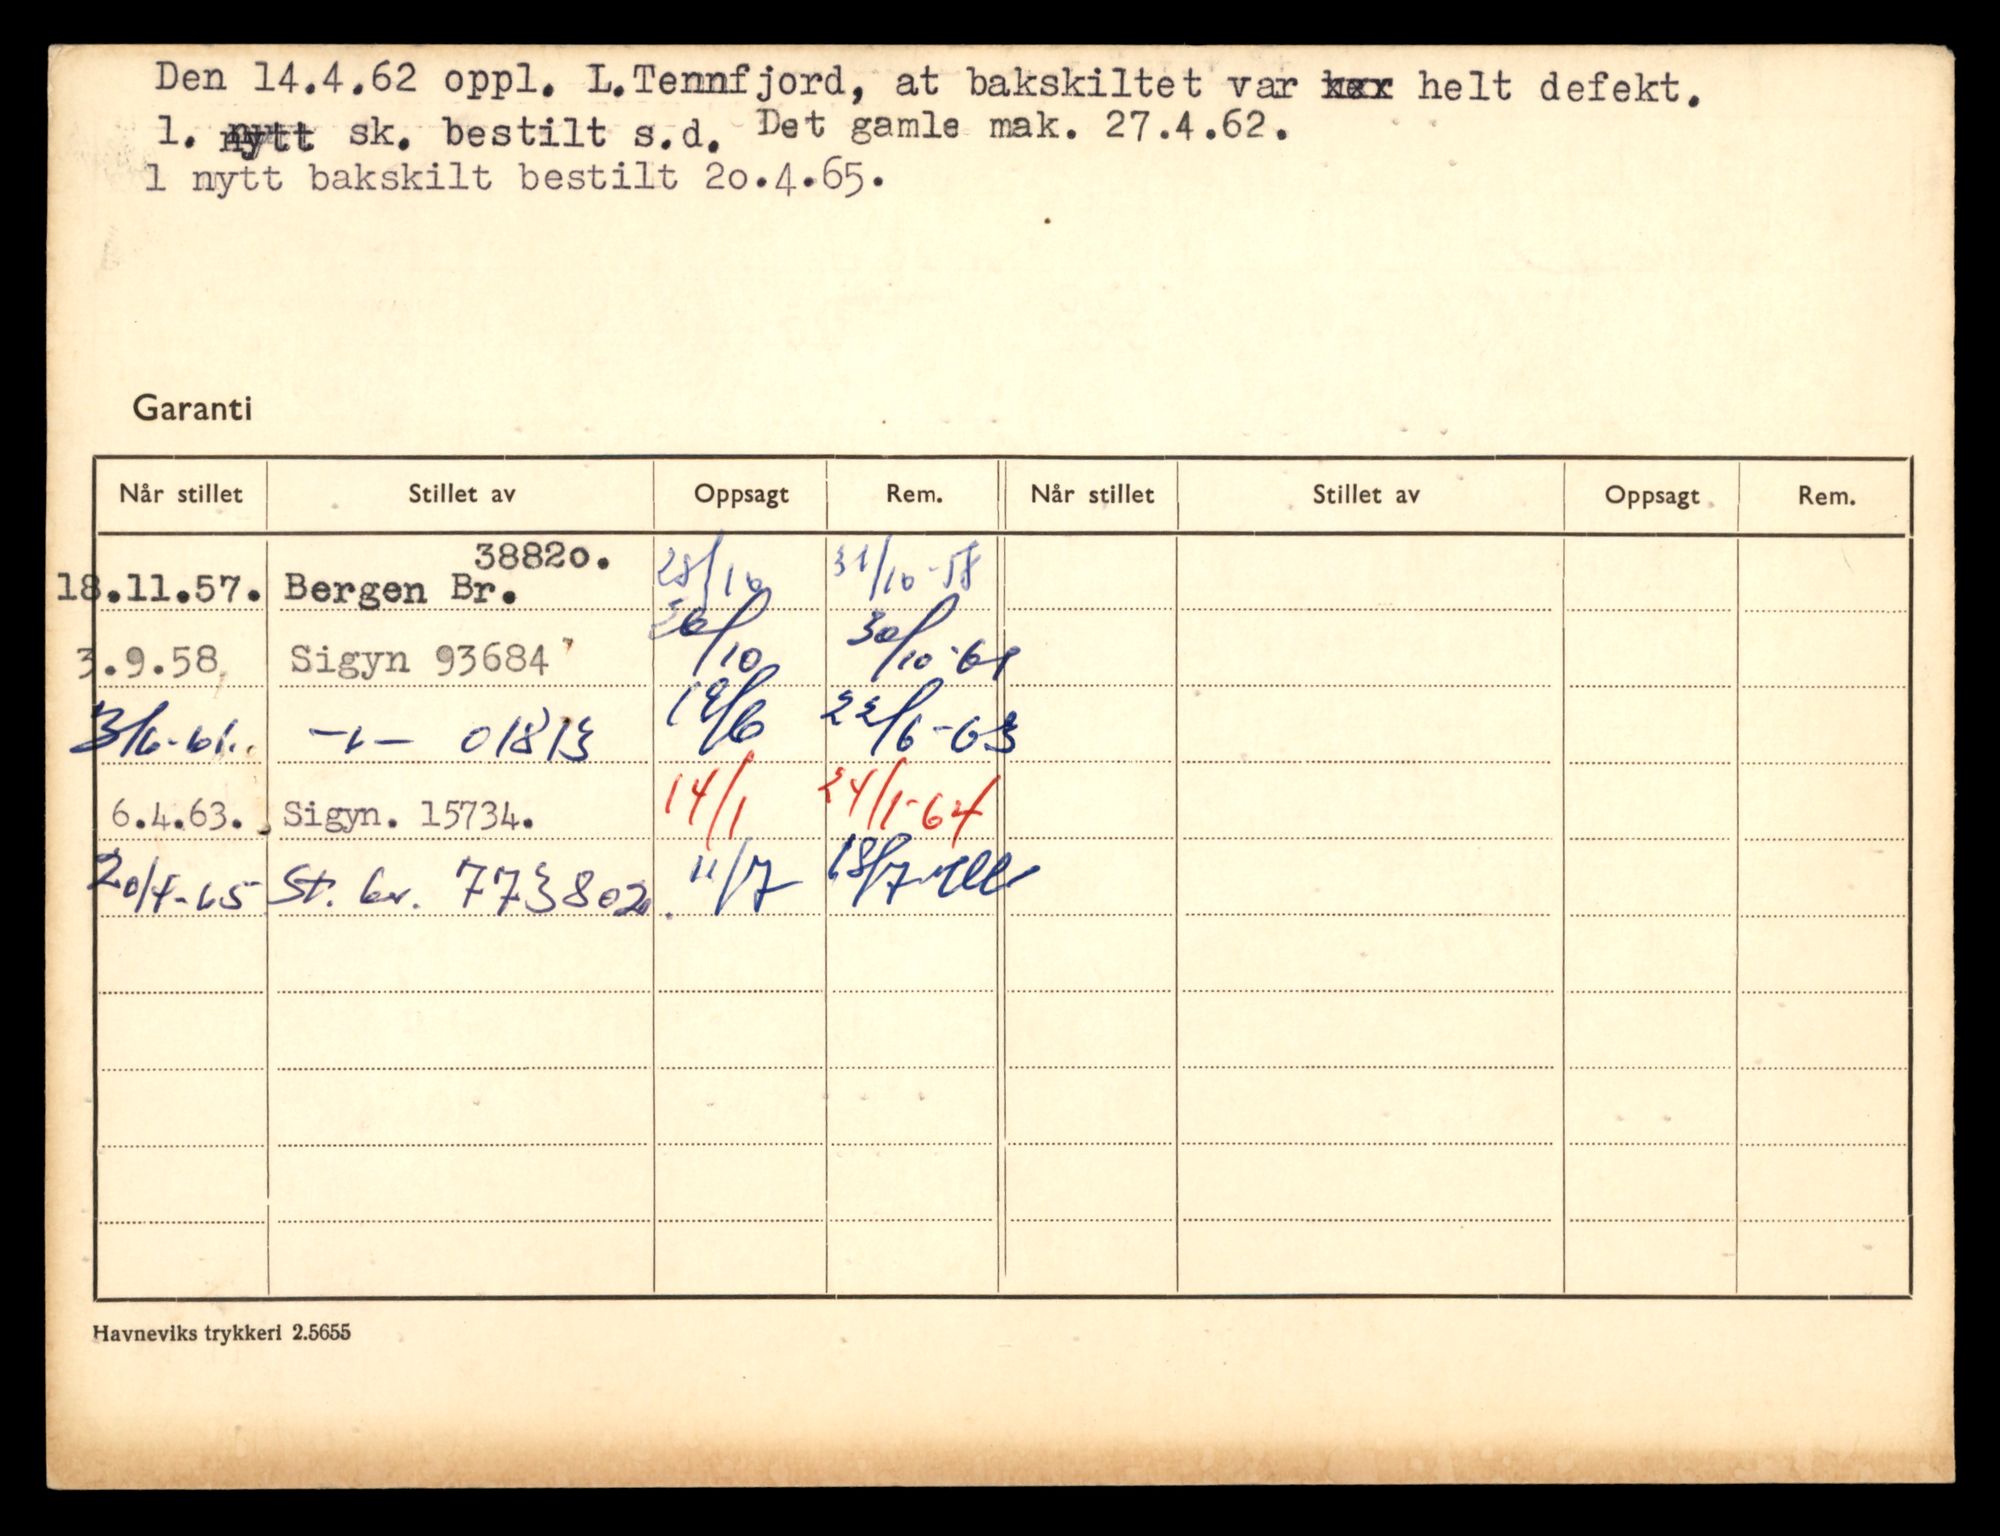 Den 14.4.62 oppl. L.Tennfjord, at bakskiltet var helt defekt.
1. nytt sk. bestilt s.d. Det gamle mak. 27.4.62.
1 nytt bakskilt bestilt 20.4.65.
Garanti
Når stillet Stillet av Oppsagt Rem. Når stillet Stillet av Oppsagt Rem.
38820.
18.11.57. Bergen Br. 28/10 31/10-58
3.9.58 Sigyn 93684 30/10 30/10-61
3/6-61. -"- 01813 19/6 22/6-63
6.4.63. Sigyn. 15734. 14/1 24/1-64
20/4-65 St. br. 773802. 11/7 18/7
Havneviks trykkeri 2.5655